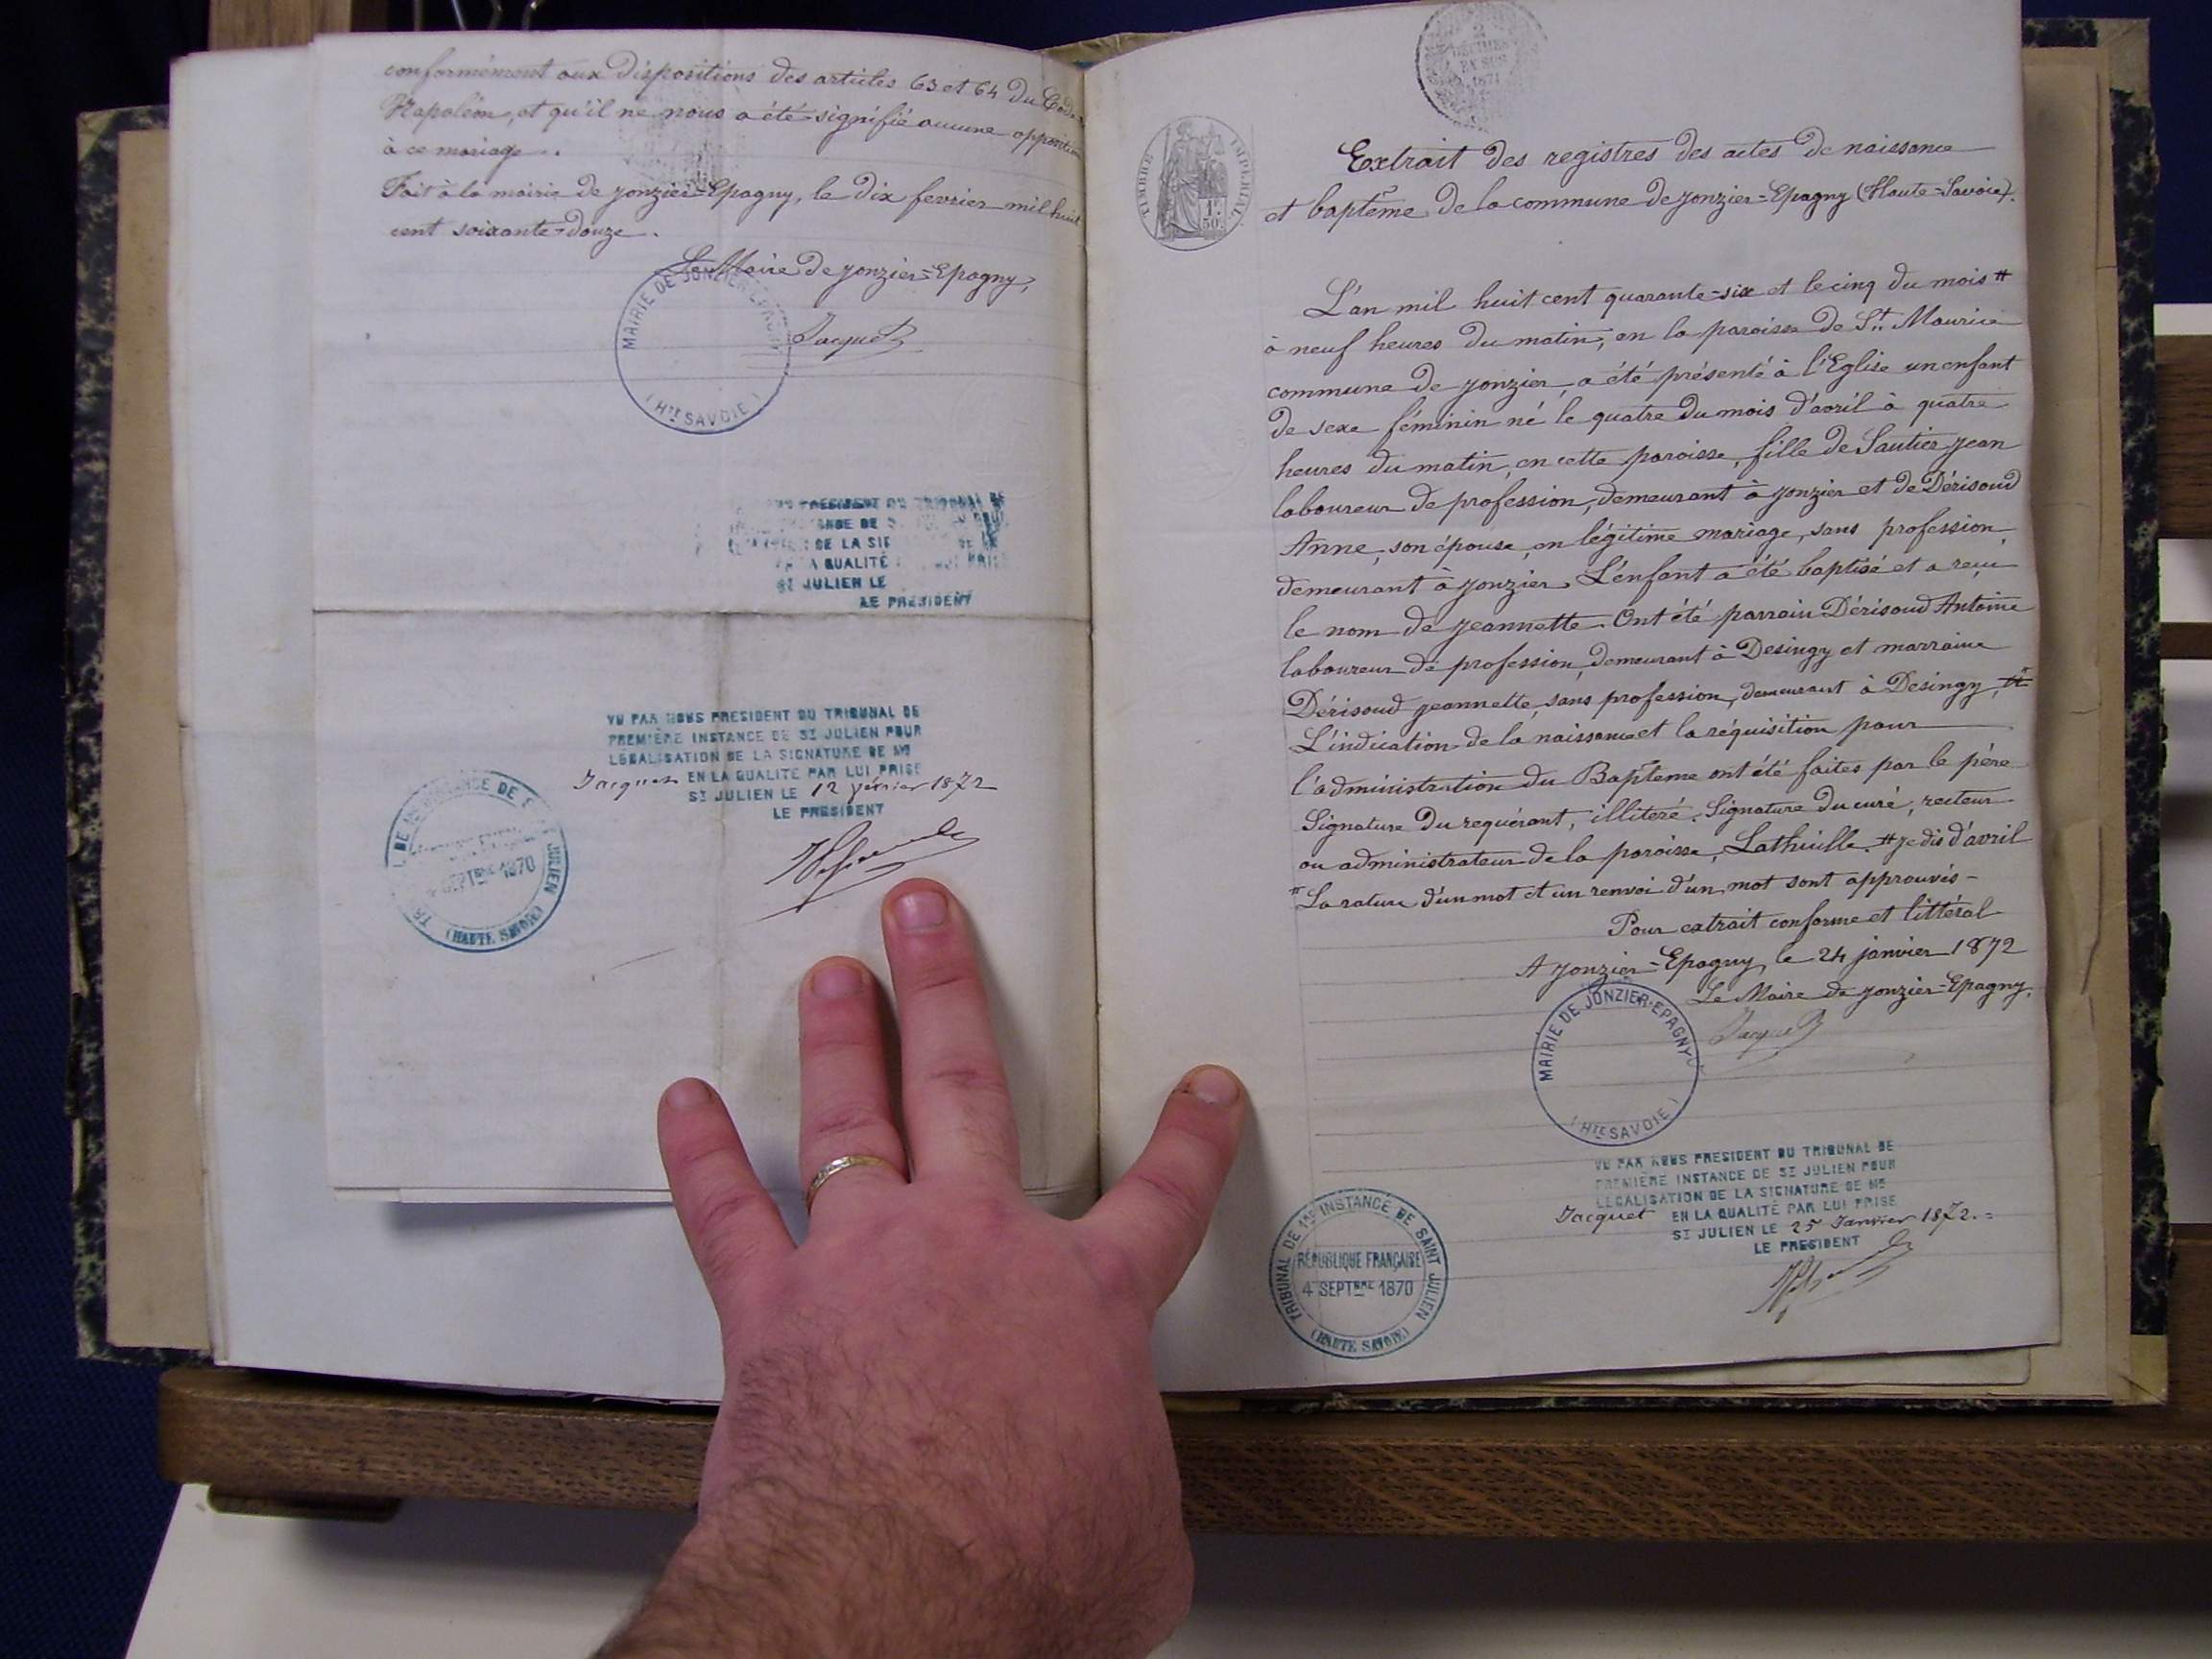 conformément aux dispositions des articles 63 et 64 du Code
Napoléon, et qu'il ne nous a été signifié aucune opposition
à ce mariage.
Fait à la mairie de jonzier=Epagny, le dix fevrier mil huit
cent soixante=douze.
Le Maire de jonzier=Epagny,
Jacquet
MAIRIE DE JONZIER-EPAGNY
(HTE SAVOIE)
PRESIDENT DU TRIBUNAL DE
DE LA
QUALITÉ
ST JULIEN LE
LE PRESIDENT
VU PAR NOUS PRESIDENT DU TRIBUNAL DE
PREMIÈRE INSTANCE DE ST JULIEN POUR
LÉGALISATION DE LA SIGNATURE DE MR
Jacquet EN LA QUALITÉ PAR LUI PRISE
ST JULIEN LE 12 février 1872
LE PRESIDENT
INSTANCE DE JULIEN
SEPTBRE 1870
(HAUTE SAVOIE)
2
DÉCIMES
EN SUS
1871
TIMBRE IMPÉRIAL
1F
50C
Extrait des registres des actes de naissance
et baptême de la commune de jonzier=Epagny (Haute=Savoie).
L'an mil huit cent quarante=six et le cinq du mois #
à neuf heures du matin, en la paroisse de St. Maurice
commune de jonzier, a été présenté à l'Eglise un enfant
de sexe féminin né le quatre du mois d'avril à quatre
heures du matin, en cette paroisse, fille de Sautier jean
laboureur de profession, demeurant à jonzier et de Dérisoud
Anne, son épouse, en légitime mariage, sans profession,
demeurant à jonzier. L'enfant a été baptisé et a reçu
le nom de jeannette. Ont été parrain Dérisoud Antoine
laboureur de profession, demeurant à Desingy et marraine
Dérisoud jeannette, sans profession, demeurant à Desingy,
L'indication de la naissance et la réquisition pour
l'administration du Baptême ont été faites par le père
Signature du requérant, illitéré. Signature du curé, recteur
ou administrateur de la paroisse, Lathuille. # je dis d'avril
" La rature d'un mot et un renvoi d'un mot sont approuvés -
Pour extrait conforme et littéral
A jonzier=Epagny, le 24 janvier 1872
Le Maire de jonzier=Epagny,
Jacquet
MAIRIE DE JONZIER-EPAGNY
(HTE SAVOIE)
VU PAR NOUS PRESIDENT DU TRIBUNAL DE
PREMIÈRE INSTANCE DE ST JULIEN POUR
LÉGALISATION DE LA SIGNATURE DE MR
Jacquet EN LA QUALITÉ PAR LUI PRISE
ST JULIEN LE 25 Janvier 1872.=
LE PRESIDENT
TRIBUNAL DE 1RE INSTANCE DE SAINT JULIEN
RÉPUBLIQUE FRANÇAISE
4 SEPTBRE 1870
(HAUTE SAVOIE)